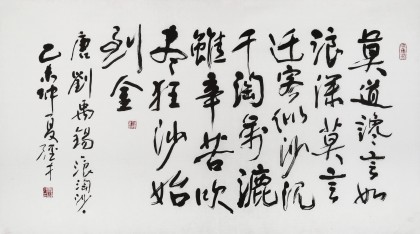 莫道讒言如
浪深莫言
迁客似沙沉
千淘萬漉
雖辛苦吹
尽狂沙始
到金
唐劉禹錫浪淘沙
乙未仲夏